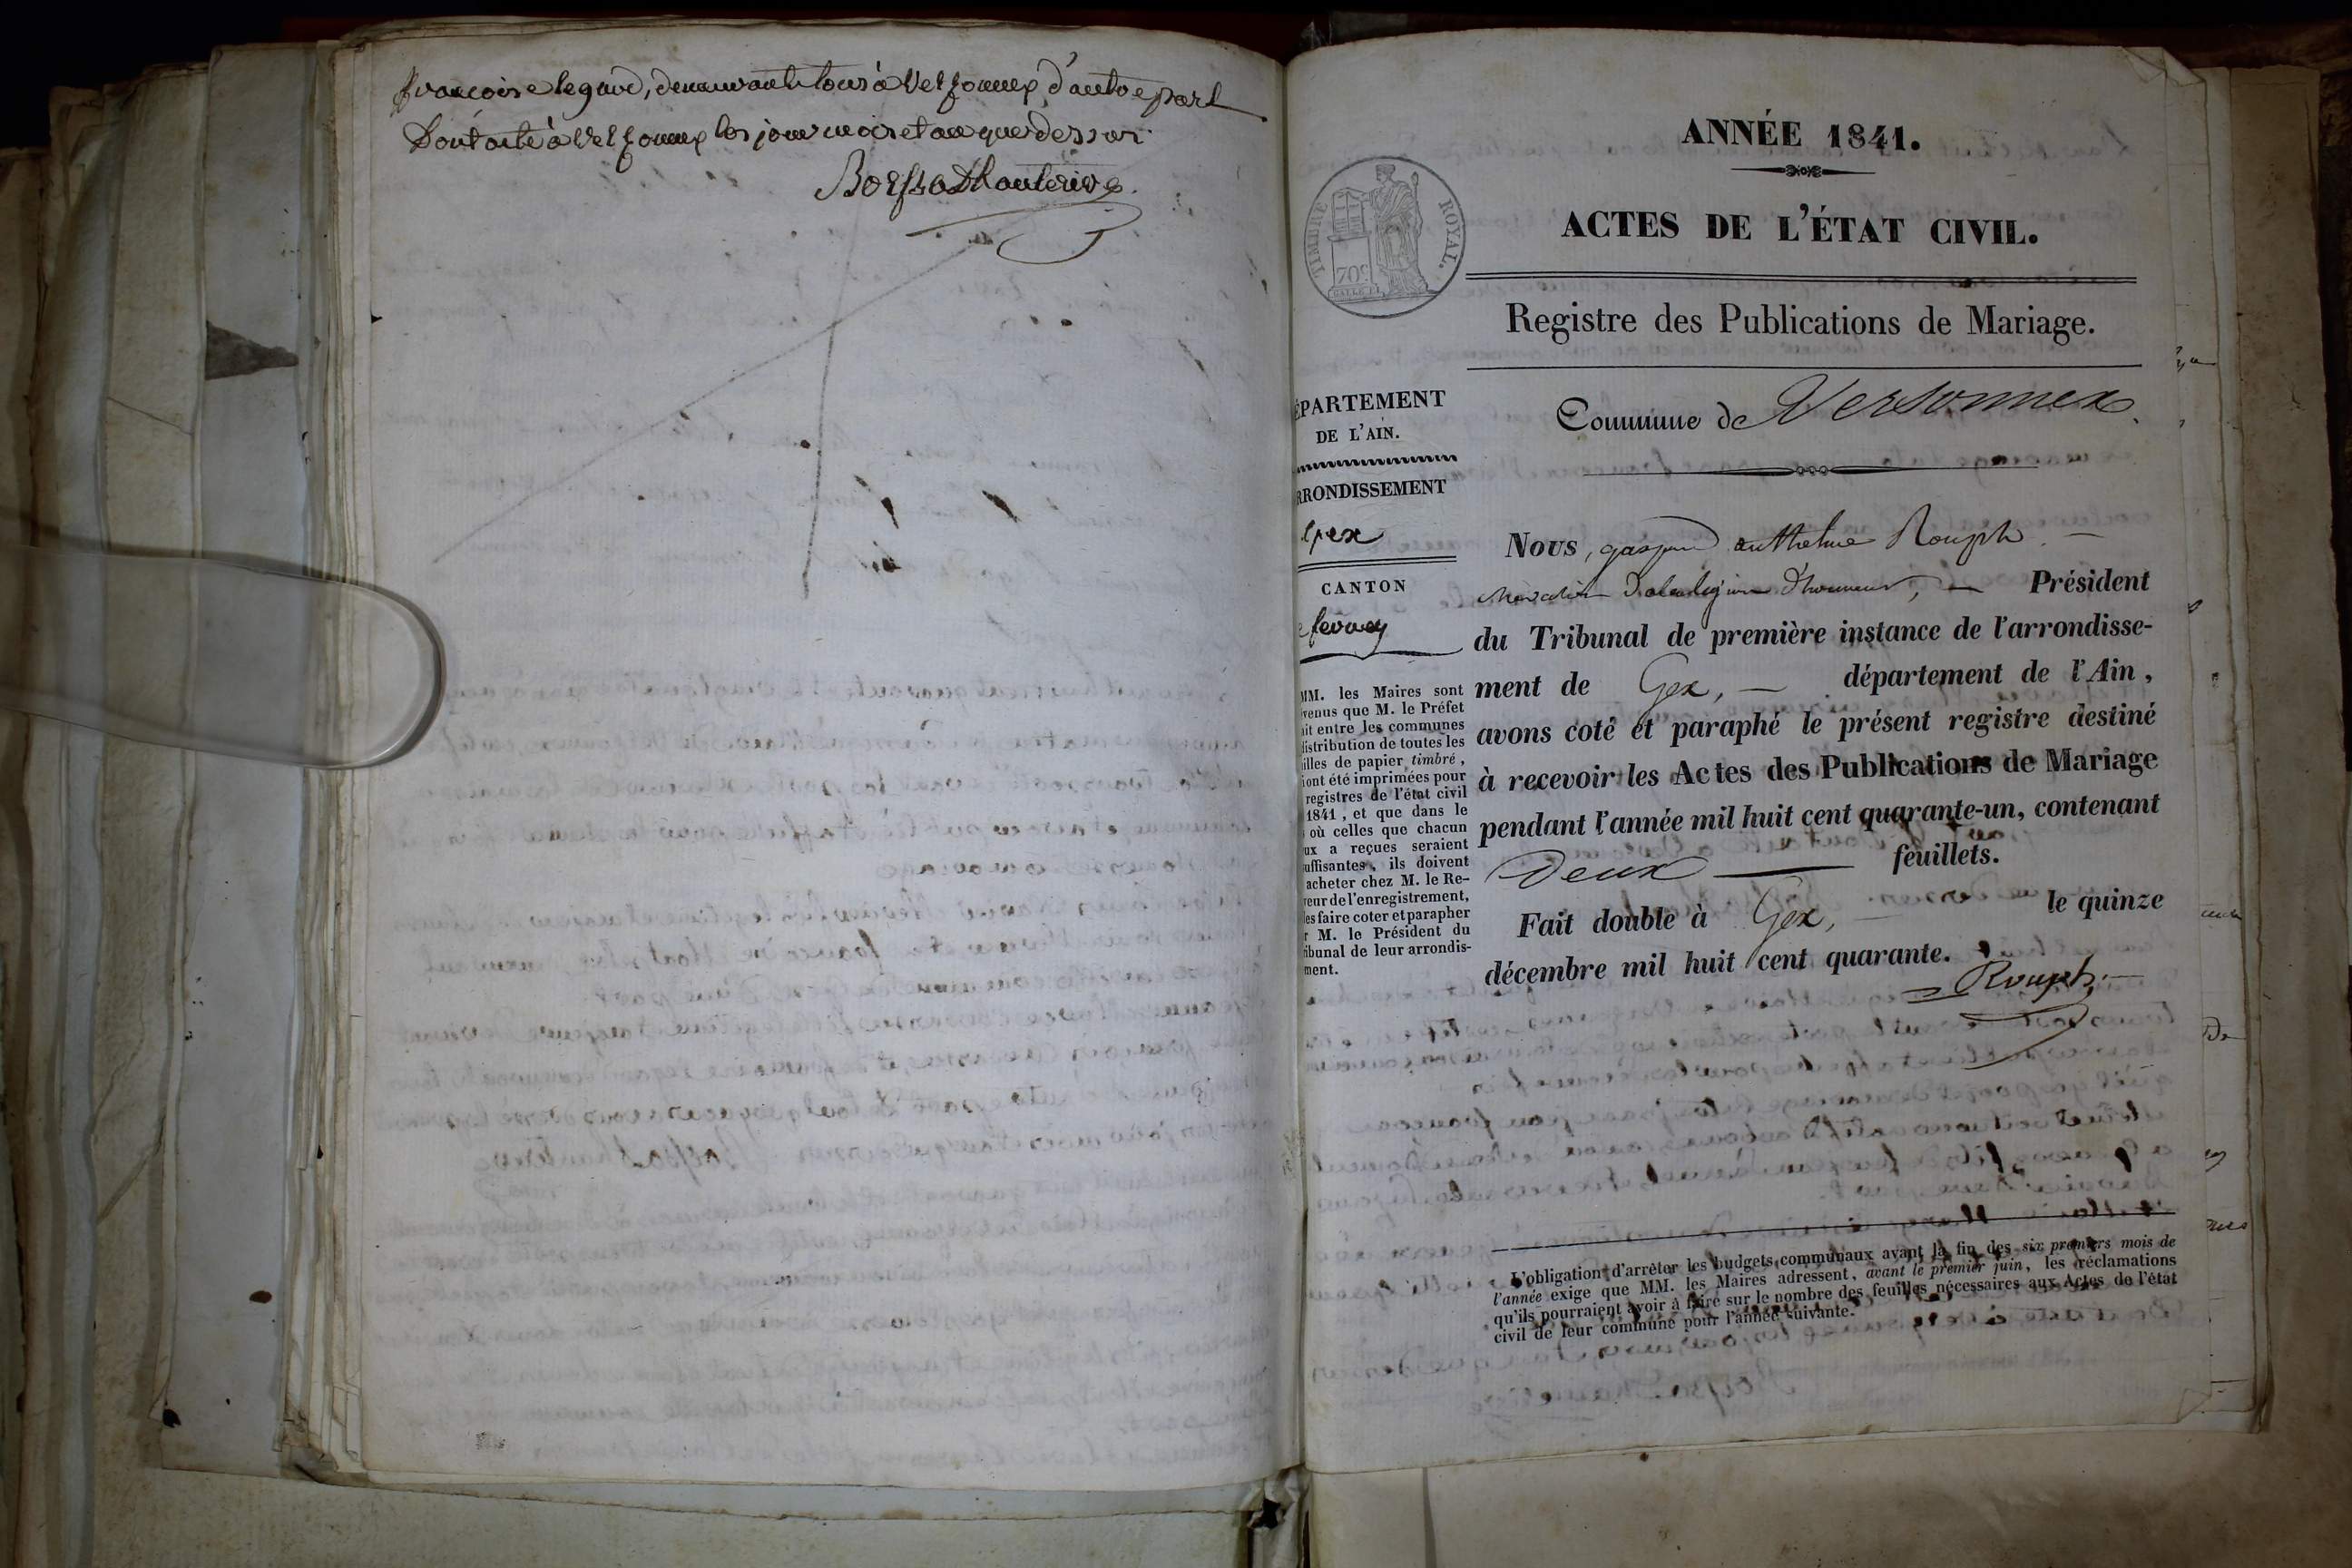 françoise legard, demeurants tous à Versonnex d'autre part
Dont acte à Versonnex les jour mois et an que dessus.
ANNÉE 1841.
ACTES DE L'ÉTAT CIVIL.
TIMBRE ROYAL.
70c
Registre des Publications de Mariage.
Commune de Versonnex.
ÉPARTEMENT
DE L'AIN.
RRONDISSEMENT
gex
CANTON
ferney
MM. les Maires sont
venus que M. le Préfet
ait entre les communes
distribution de toutes les
illes de papier timbré,
iont été imprimées pour
registres de l'état civil
1841, et que dans le
où celles que chacun
ux a reçues seraient
uffisantes, ils doivent
acheter chez M. le Re-
veur de l'enregistrement,
les faire coter et parapher
r M. le Président du
ribunal de leur arrondis-
ment.
Nous, gaspard anthelme Rouph
chevalier de la légion d'honneur, Président
du Tribunal de première instance de l'arrondisse-
ment de Gex, département de l'Ain,
avons coté et paraphé le présent registre destiné
à recevoir les Actes des Publications de Mariage
pendant l'année mil huit cent quarante-un, contenant
Deux feuillets.
Fait double à Gex, le quinze
décembre mil huit cent quarante.
Rouph
L'obligation d'arrêter les budgets communaux avant la fin des six premiers mois de
l'année exige que MM. les Maires adressent, avant le premier juin, les réclamations
qu'ils pourraient avoir à faire sur le nombre des feuilles nécessaires aux Actes de l'état
civil de leur commune pour l'année suivante.